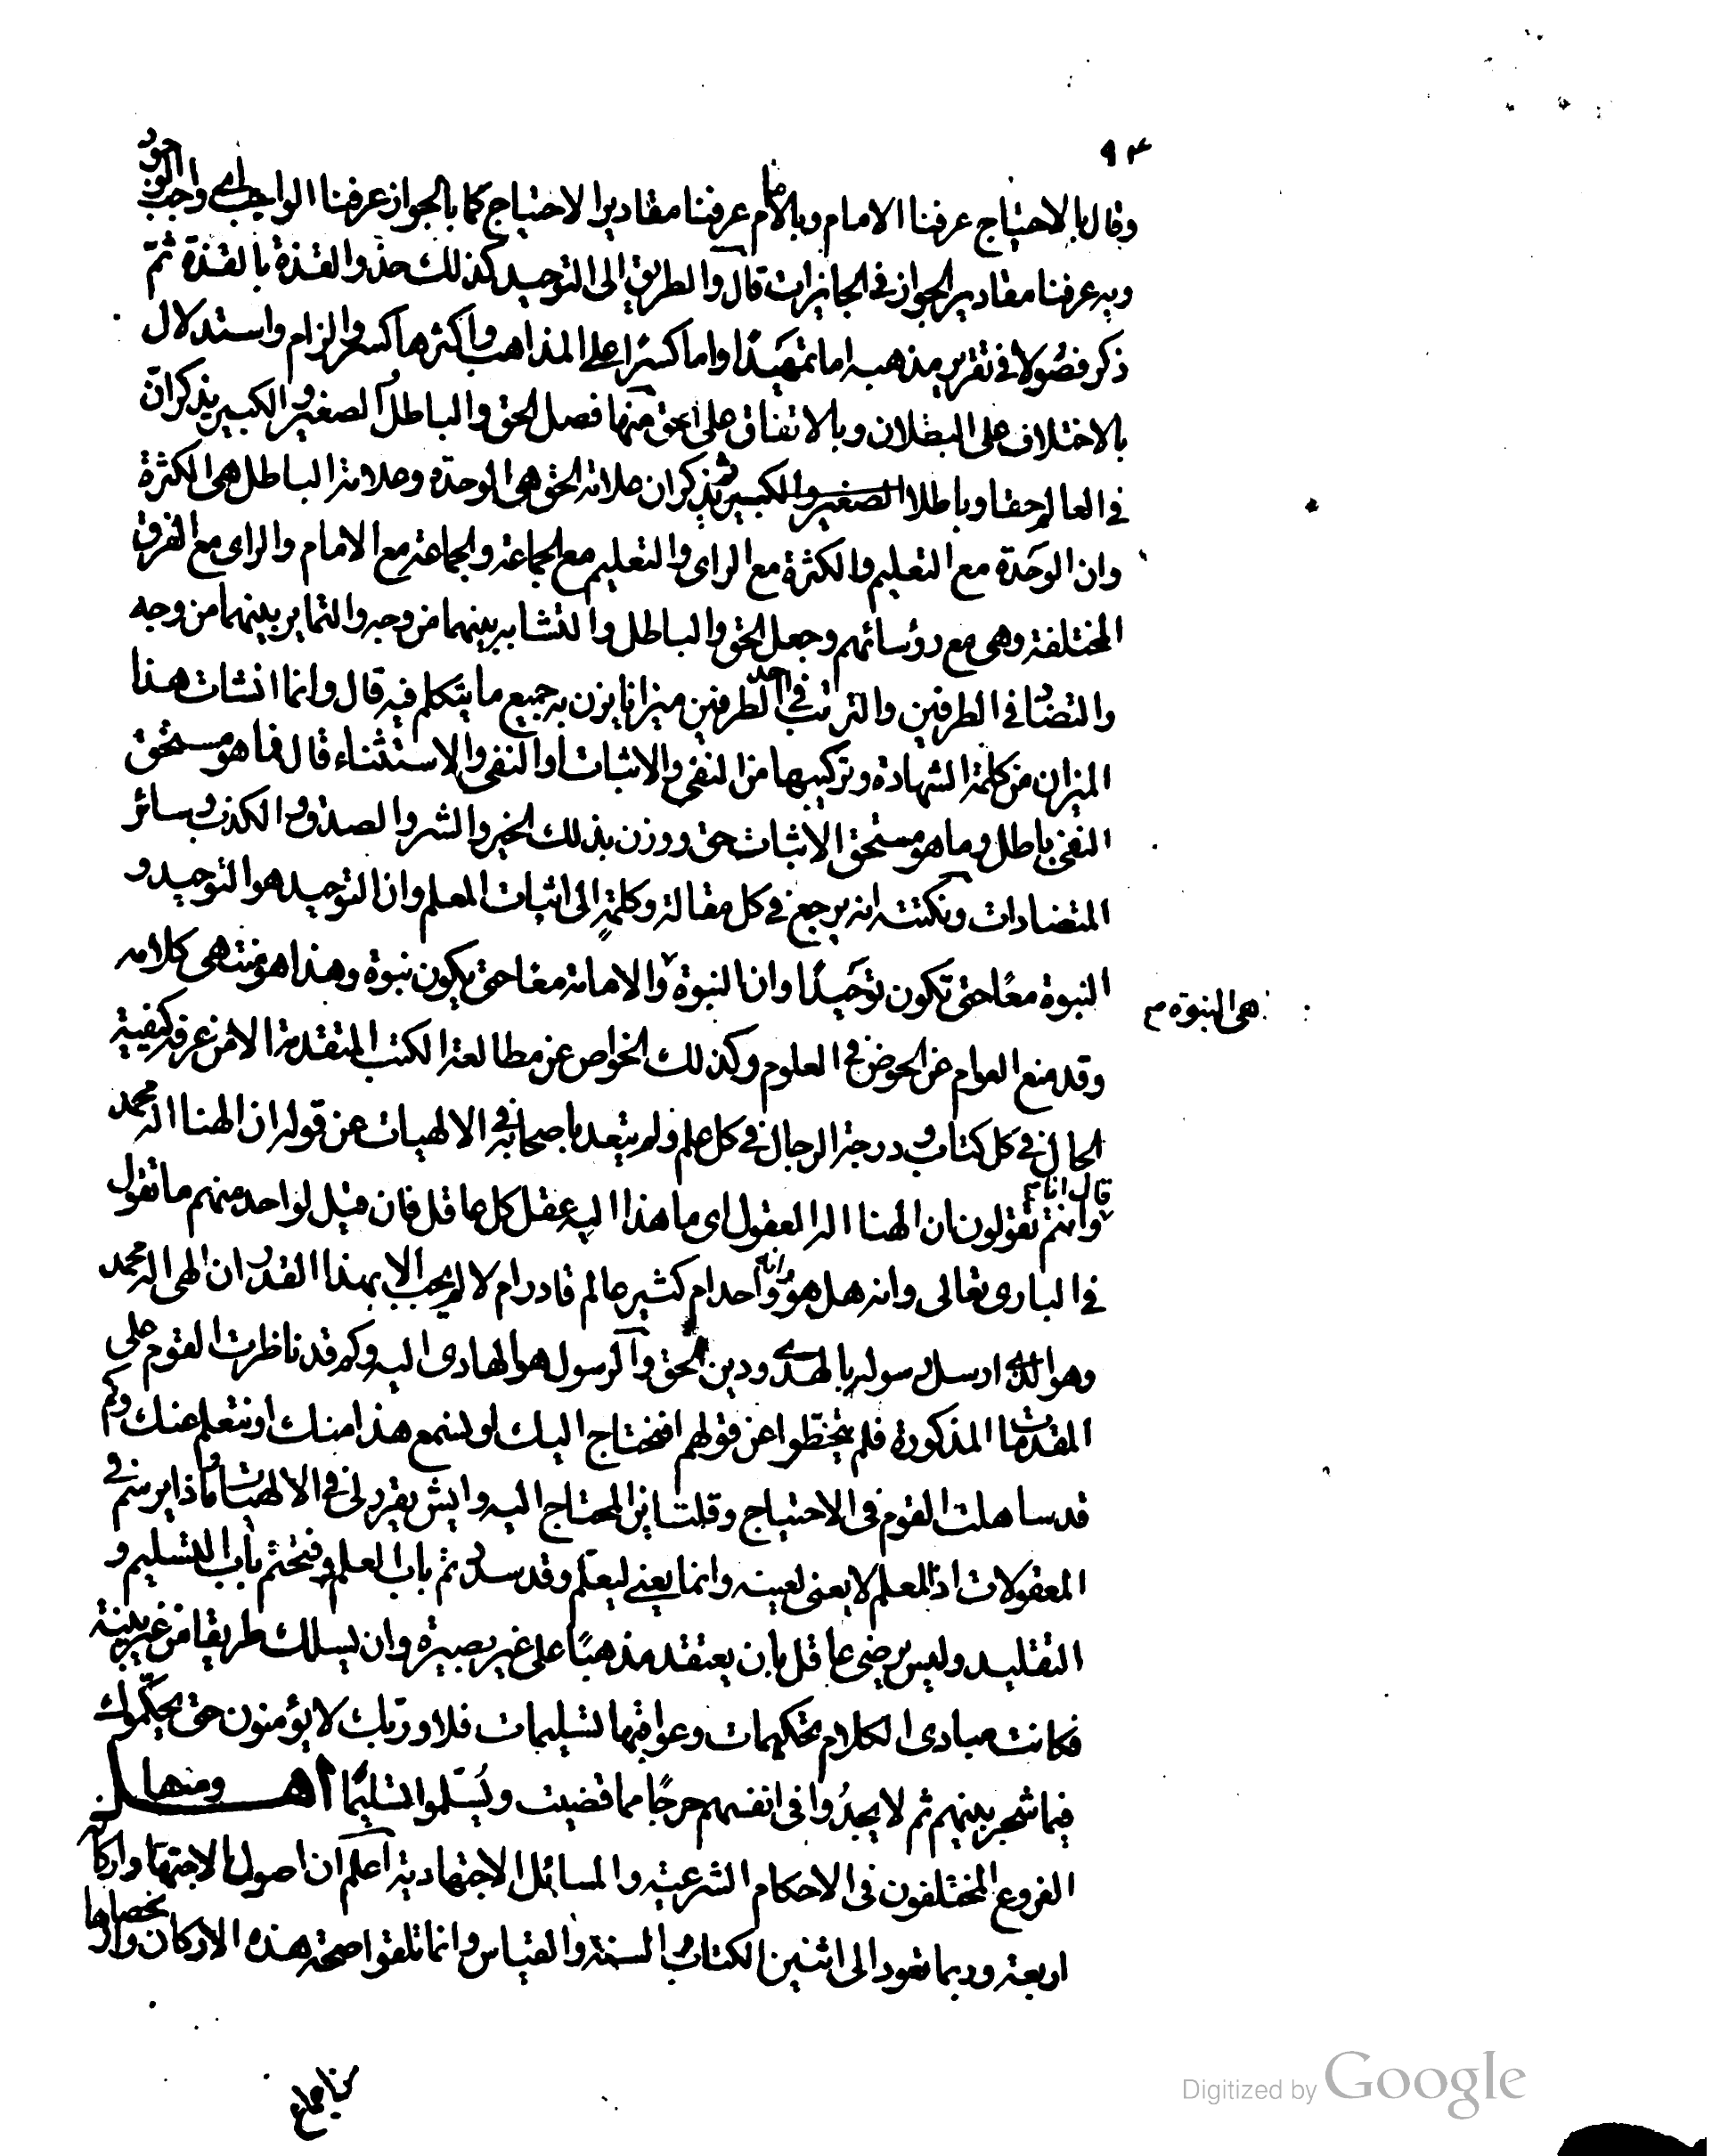 ٩٣
وقال بالاحتياج عرفنا الامام وبالامام عرفنا مقادير الاحتياج كما بالجواز عرفنا الواجب اي واجب الوجود
وبه عرفنا مقادير الجواز في الجايزات قال والطريق الى التوحيد كذلك حذو القذة بالقذة ثم
ذكر فصولا في تقرير مذهبه اما تمهيدا واما كسرا على المذاهب واكثرها كسر والزام واستدلال
بالاختلاف على البطلان وبالاتفاق على الحق منها فصل الحق والباطل الصغير والكبير يذكر ان
في العالم حقا وباطلا الصغير والكبير ثم يذكر ان علامة الحق هى الوحدة وعلامة الباطل هى الكثرة
وان الوحدة مع التعليم والكثرة مع الراى والتعليم مع الجماعة والجماعة مع الامام والراى مع الفرق
المختلفة وهى مع رؤسائهم وجعل الحق والباطل والتشابه بينهما من وجه والتمايز بينهما من وجه
والتضاد في الطرفين والترتب في احد الطرفين ميزانا يزن به جميع ما يتكلم فيه قال وانما انشات هذا
الميزان من كلمة الشهادة وتركيبها من النفى والاثبات او النفى والاستثناء قال فما هو مستحق
النفى باطل وما هو مستحق الاثبات حق ووزن بذلك الخير والشر والصدق والكذب وسائر
المتضادات ونكتته انه يرجع في كل مقالة وكلمة الى اثبات المعلم وان التوحيد هو التوحيد و
النبوة معا حتى تكون توحيدا وان النبوة والامامة معا حتى يكون نبوة وهذا هو منتهى كلامه
هى النبوة
وقد منع العوام عن الخوض في العلوم وكذلك الخواص عن مطالعة الكتب المتقدمة الا من عرف كيفية
الحال في كل كتاب ودرجة الرجال في كل علم ولم يتعد باصحابه في الالهيات عن قوله ان الهنا اله محمد
قال انا
وانتم تقولون ان الهنا اله العقول اى ما هذا اليه عقل كل عاقل فان قيل لواحد منهم ما تقول
في البارى تعالى وانه هل هو وانه واحد ام كثير عالم قادر ام لا لم يجب الا بهذا القدر ان الهى اله محمد
وهو الذي ارسل رسوله بالهدى ودين الحق والرسول هو الهادى اليه وكم قد ناظرت القوم على
المقدمات المذكورة فلم يتخطوا عن قولهم افنحتاج اليك او نسمع هذا منك او نتعلم عنك وكم
قد ساهلت القوم في الاحتياج وقلت اين المحتاج اليه وايش يقرر لى في الالهيات وماذا يرسم في
المعقولات اذ المعلم لا يعنى لعينه وانما يعنى ليعلم وقد سددتم باب العلم وفتحتم باب التسليم و
التقليد وليس يرضى عاقل بان يعتقد مذهبا على غير بصيرة وان يسلك طريقا من غير بينة
فكانت مبادى الكلام تحكيمات وعواقبها تسليمات فلا وربك لا يؤمنون حتى يحكموك
فيما شجر بينهم ثم لا يجدوا في انفسهم حرجا مما قضيت ويسلموا تسليما ومنها اهل
الفروع المختلفون في الاحكام الشرعية والمسائل الاجتهادية اعلم ان اصول الاجتهاد واركانه
اربعة وربما تعود الى اثنين الكتاب والسنة والقياس وانما تلقوا صحة هذه الاركان وانحصارها
Digitized by Google